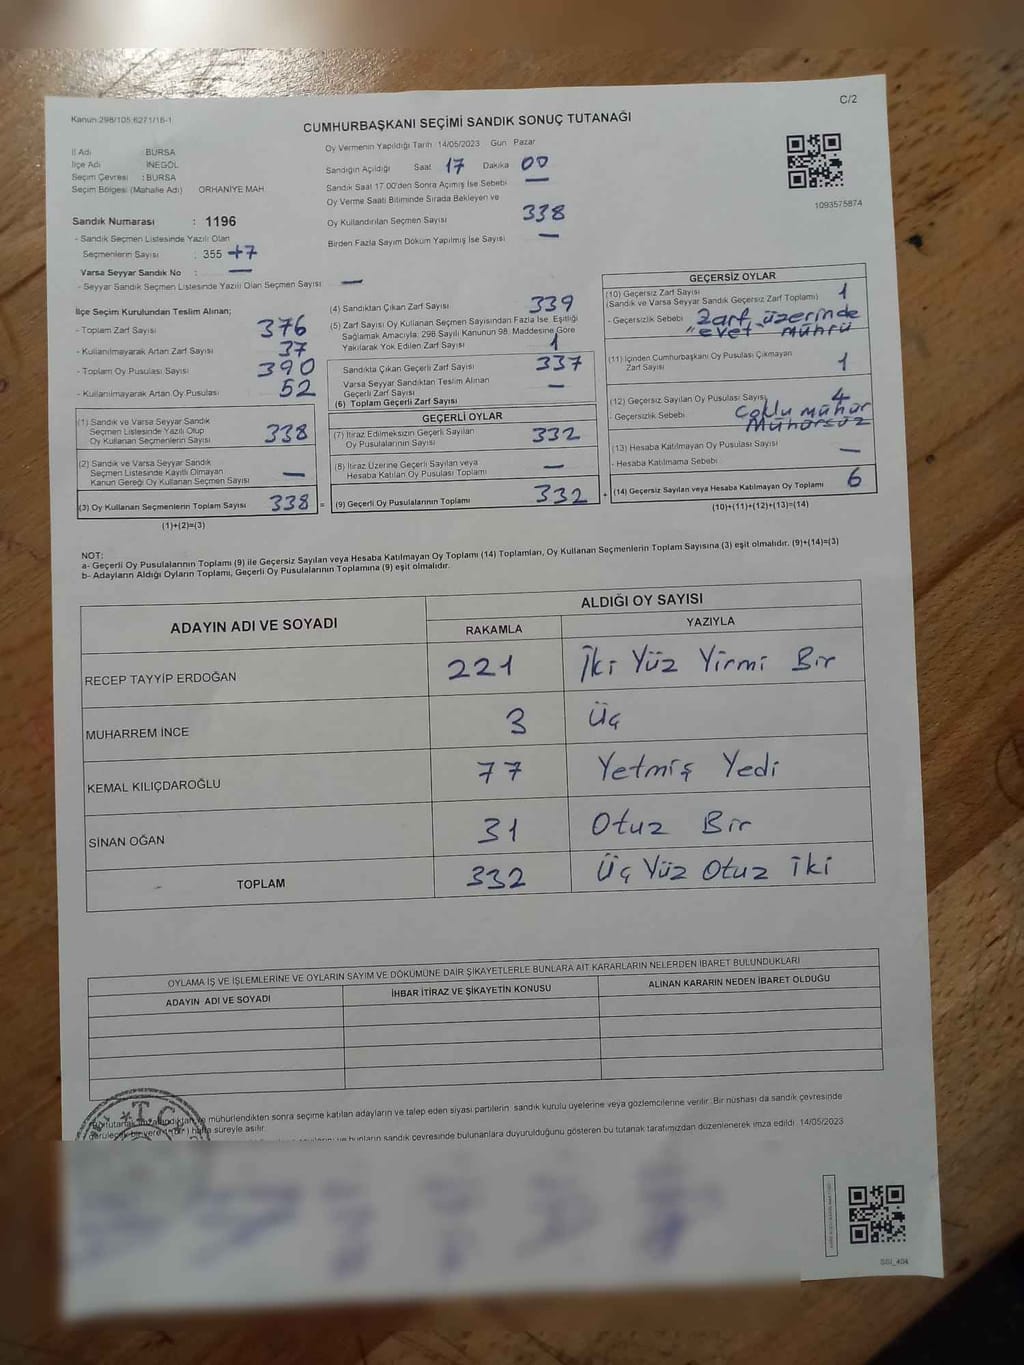 Kanun:298/105,6271/18-1
C/2
CUMHURBAŞKANI SEÇİMİ SANDIK SONUÇ TUTANAĞI
İl Adı : BURSA
İlçe Adı : İNEGÖL
Seçim Çevresi : BURSA
Seçim Bölgesi (Mahalle Adı) ORHANİYE MAH.
Sandık Numarası : 1196
- Sandık Seçmen Listesinde Yazılı Olan
Seçmenlerin Sayısı : 355 +7
Varsa Seyyar Sandık No : —
- Seyyar Sandık Seçmen Listesinde Yazılı Olan Seçmen Sayısı —
Oy Vermenin Yapıldığı Tarih 14/05/2023 Gün Pazar
Sandığın Açıldığı Saat 17 Dakika 00
Sandık Saat 17:00'den Sonra Açımış İse Sebebi —
Oy Verme Saati Bitiminde Sırada Bekleyen ve
Oy Kullandırılan Seçmen Sayısı 338
Birden Fazla Sayım Döküm Yapılmış İse Sayısı —
1093575874
İlçe Seçim Kurulundan Teslim Alınan;
- Toplam Zarf Sayısı 376
- Kullanılmayarak Artan Zarf Sayısı 37
- Toplam Oy Pusulası Sayısı 390
- Kullanılmayarak Artan Oy Pusulası 52
(1) Sandık ve Varsa Seyyar Sandık
Seçmen Listesinde Yazılı Olup
Oy Kullanan Seçmenlerin Sayısı 338
(2) Sandık ve Varsa Seyyar Sandık
Seçmen Listesinde Kayıtlı Olmayan
Kanun Gereği Oy Kullanan Seçmen Sayısı —
(3) Oy Kullanan Seçmenlerin Toplam Sayısı 338 =
(1)+(2)=(3)
(4) Sandıktan Çıkan Zarf Sayısı 339
(5) Zarf Sayısı Oy Kullanan Seçmen Sayısından Fazla İse, Eşitliği
Sağlamak Amacıyla; 298 Sayılı Kanunun 98. Maddesine Göre
Yakılarak Yok Edilen Zarf Sayısı 1
Sandıkta Çıkan Geçerli Zarf Sayısı 337
Varsa Seyyar Sandıktan Teslim Alınan
Geçerli Zarf Sayısı —
(6) Toplam Geçerli Zarf Sayısı
GEÇERLİ OYLAR
(7) İtiraz Edilmeksizin Geçerli Sayılan
Oy Pusulalarının Sayısı 332
(8) İtiraz Üzerine Geçerli Sayılan veya
Hesaba Katılan Oy Pusulası Toplamı —
(9) Geçerli Oy Pusulalarının Toplamı 332 +
GEÇERSİZ OYLAR
(10) Geçersiz Zarf Sayısı
(Sandık ve Varsa Seyyar Sandık Geçersiz Zarf Toplamı) 1
- Geçersizlik Sebebi Zarf üzerinde
"evet" mührü
(11) İçinden Cumhurbaşkanı Oy Pusulası Çıkmayan
Zarf Sayısı 1
(12) Geçersiz Sayılan Oy Pusulası Sayısı 4
- Geçersizlik Sebebi Çoklu mühür
Mühürsüz
(13) Hesaba Katılmayan Oy Pusulası Sayısı —
- Hesaba Katılmama Sebebi
(14) Geçersiz Sayılan veya Hesaba Katılmayan Oy Toplamı 6
(10)+(11)+(12)+(13)=(14)
NOT:
a- Geçerli Oy Pusulalarının Toplamı (9) ile Geçersiz Sayılan veya Hesaba Katılmayan Oy Toplamı (14) Toplamları, Oy Kullanan Seçmenlerin Toplam Sayısına (3) eşit olmalıdır. (9)+(14)=(3)
b- Adayların Aldığı Oyların Toplamı, Geçerli Oy Pusulalarının Toplamına (9) eşit olmalıdır.
ADAYIN ADI VE SOYADI
ALDIĞI OY SAYISI
RAKAMLA YAZIYLA
RECEP TAYYİP ERDOĞAN 221 İki Yüz Yirmi Bir
MUHARREM İNCE 3 Üç
KEMAL KILIÇDAROĞLU 77 Yetmiş Yedi
SİNAN OĞAN 31 Otuz Bir
TOPLAM 332 Üç Yüz Otuz iki
OYLAMA İŞ VE İŞLEMLERİNE VE OYLARIN SAYIM VE DÖKÜMÜNE DAİR ŞİKAYETLERLE BUNLARA AİT KARARLARIN NELERDEN İBARET BULUNDUKLARI
ADAYIN ADI VE SOYADI İHBAR İTİRAZ VE ŞİKAYETİN KONUSU ALINAN KARARIN NEDEN İBARET OLDUĞU
T.C
mühürlendikten sonra seçime katılan adayların ve talep eden siyasi partilerin sandık kurulu üyelerine veya gözlemcilerine verilir. Bir nüshası da sandık çevresinde
bir yere süreyle asılır.
ve bunların sandık çevresinde bulunanlara duyurulduğunu gösteren bu tutanak tarafımızdan düzenlenerek imza edildi. 14/05/2023
SSI_404